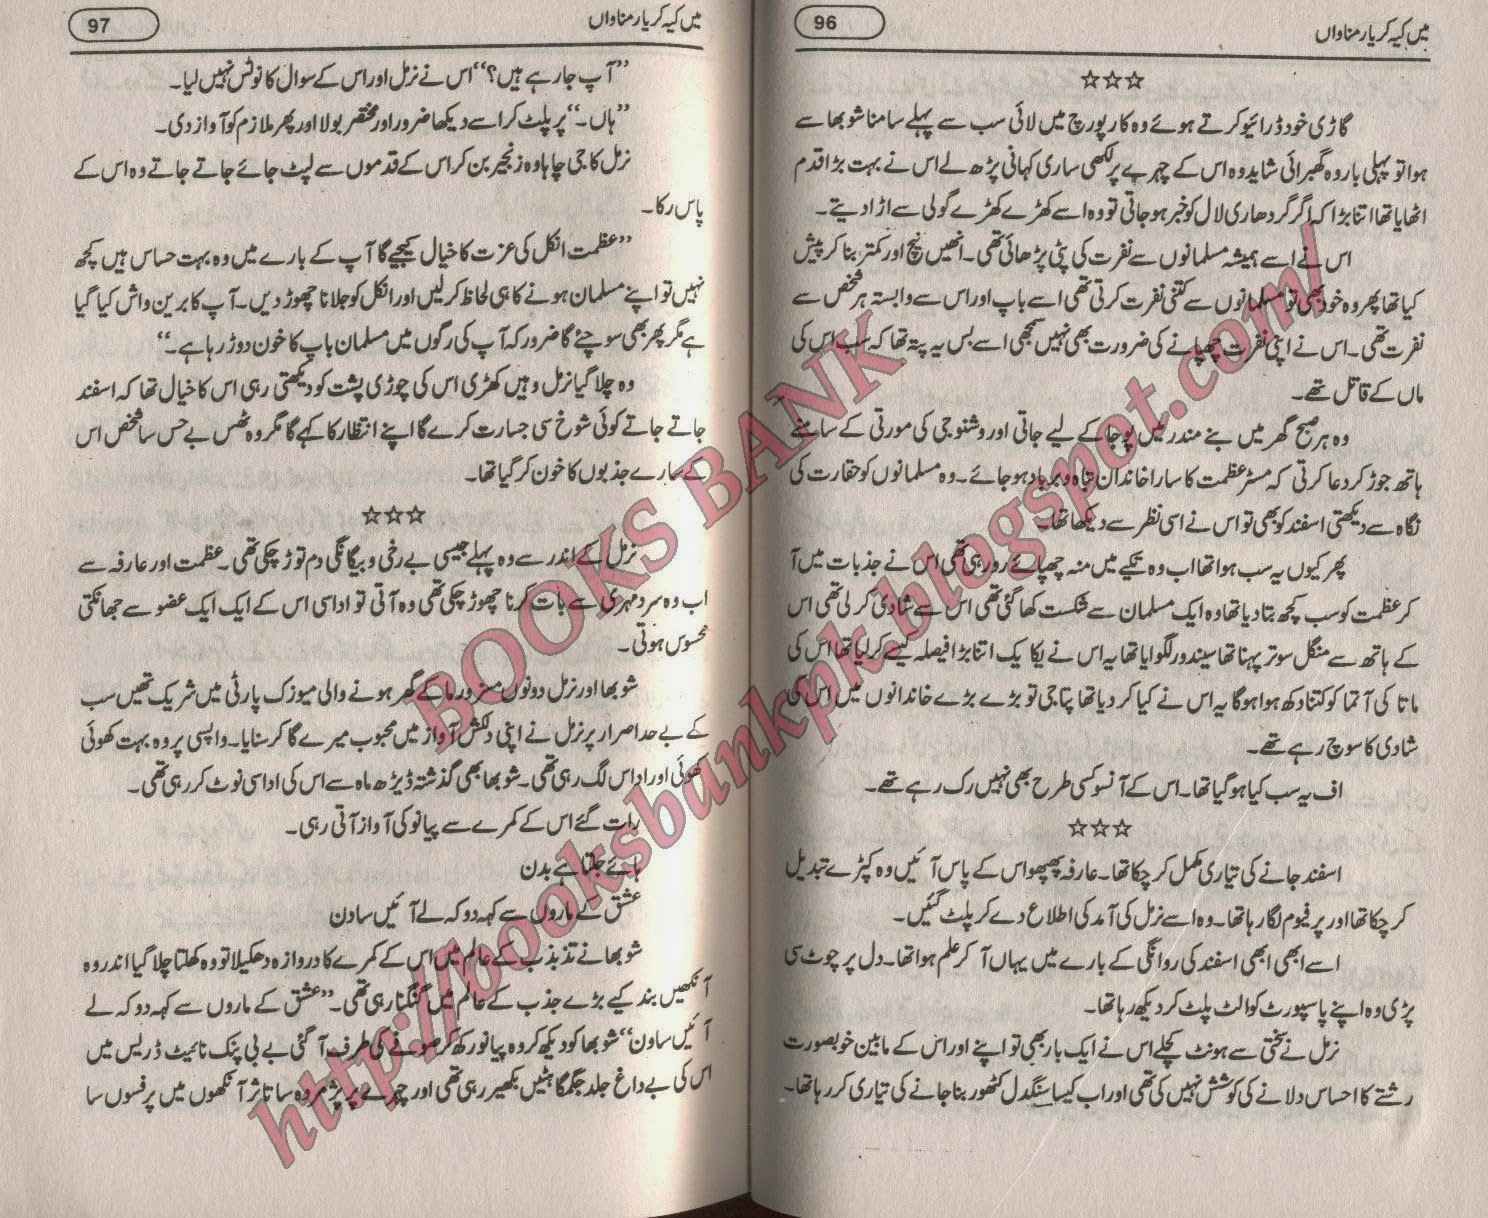 96
میں کیہ کر یار مناواں
☆☆☆
گاڑی خود ڈرائیو کرتے ہوئے وہ کار پورچ میں لائی سب سے پہلے سامنا شوبھا سے
ہوا تو پہلی بار وہ گھبرائی شاید وہ اس کے چہرے پر لکھی ساری کہانی پڑھ لے اس نے بہت بڑا قدم
اٹھایا تھا اتنا بڑا کہ اگر گردھاری لال کو خبر ہو جاتی تو وہ اسے کھڑے کھڑے گولی سے اڑا دیتے۔
اس نے اسے ہمیشہ مسلمانوں سے نفرت کی پٹی پڑھائی تھی۔ انھیں نیچ اور کمتر بنا کر پیش
کیا تھا پھر وہ خود بھی تو مسلمانوں سے کتنی نفرت کرتی تھی اسے باپ اور اس سے وابستہ ہر شخص سے
نفرت تھی۔ اس نے اپنی نفرت چھپانے کی ضرورت بھی نہیں سمجھی اسے بس یہ پتہ تھا کہ سب اس کی
ماں کے قاتل تھے۔
وہ ہر صبح گھر میں بنے مندر میں پوجا کے لیے جاتی اور وشنو جی کی مورتی کے سامنے
ہاتھ جوڑ کر دعا کرتی کہ مسٹر عظمت کا سارا خاندان تباہ و برباد ہو جائے۔ وہ مسلمانوں کو حقارت کی
نگاہ سے دیکھتی اسفند کو بھی تو اس نے اسی نظر سے دیکھا تھا۔
پھر کیوں یہ سب ہوا تھا اب وہ تکیے میں منہ چھپائے رو رہی تھی اس نے جذبات میں آ
کر عظمت کو سب کچھ بتا دیا تھا وہ ایک مسلمان سے شکست کھا گئی تھی اس سے شادی کر لی تھی اس
کے ہاتھ سے منگل سوتر پہنا تھا سیندور لگوایا تھا یہ اس نے یکا یک اتنا بڑا فیصلہ کیسے کر لیا تھا اس کی
ماتا کی آتما کو کتنا دکھ ہوا ہو گا یہ اس نے کیا کر دیا تھا پتا جی تو بڑے بڑے خاندانوں میں اس کی
شادی کا سوچ رہے تھے۔
اف یہ سب کیا ہو گیا تھا۔ اس کے آنسو کسی طرح بھی نہیں رک رہے تھے۔
☆☆☆
اسفند جانے کی تیاری مکمل کر چکا تھا۔ عارفہ پھپھو اس کے پاس آئیں وہ کپڑے تبدیل
کر چکا تھا اور پرفیوم لگا رہا تھا۔ وہ اسے نرمل کی آمد کی اطلاع دے کر پلٹ گئیں۔
اسے ابھی ابھی اسفند کی روانگی کے بارے میں یہاں آ کر علم ہوا تھا۔ دل پر چوٹ سی
پڑی وہ اپنے پاسپورٹ کو الٹ پلٹ کر دیکھ رہا تھا۔
نرمل نے سختی سے ہونٹ کچلے اس نے ایک بار بھی تو اپنے اور اس کے مابین خوبصورت
رشتے کا احساس دلانے کی کوشش نہیں کی تھی اور اب کیسا سنگدل کٹھور بنا جانے کی تیاری کر رہا تھا۔
97
میں کیہ کر یار مناواں
”آپ جا رہے ہیں؟“ اس نے نرمل اور اس کے سوال کا نوٹس نہیں لیا۔
”ہاں۔“ پر پلٹ کر اسے دیکھا ضرور اور مختصر بولا اور پھر ملازم کو آواز دی۔
نرمل کا جی چاہا وہ زنجیر بن کر اس کے قدموں سے لپٹ جائے جاتے جاتے وہ اس کے
پاس رکا۔
”عظمت انکل کی عزت کا خیال کیجیے گا آپ کے بارے میں وہ بہت حساس ہیں کچھ
نہیں تو اپنے مسلمان ہونے کا ہی لحاظ کر لیں اور انکل کو جلانا چھوڑ دیں۔ آپ کا برین واش کیا گیا
ہے مگر پھر بھی سوچئے گا ضرور کہ آپ کی رگوں میں مسلمان باپ کا خون دوڑ رہا ہے۔“
وہ چلا گیا نرمل وہیں کھڑی اس کی چوڑی پشت کو دیکھتی رہی اس کا خیال تھا کہ اسفند
جاتے جاتے کوئی شوخ سی جسارت کرے گا اپنے انتظار کا کہے گا مگر وہ ٹھس بے حس سا شخص اس
کے سارے جذبوں کا خون کر گیا تھا۔
☆☆☆
نرمل کے اندر سے وہ پہلے جیسی بے رخی و بیگانگی دم توڑ چکی تھی۔ عظمت اور عارفہ سے
اب وہ سرد مہری سے بات کرنا چھوڑ چکی تھی وہ آتی تو اداسی اس کے ایک ایک عضو سے جھانکتی
محسوس ہوتی۔
شوبھا اور نرمل دونوں مسز ورما کے گھر ہونے والی میوزک پارٹی میں شریک تھیں سب
کے بے حد اصرار پر نرمل نے اپنی دلکش آواز میں محبوب میرے گا کر سنایا۔ واپسی پر وہ بہت کھوئی
کھوئی اور اداس لگ رہی تھی۔ شوبھا بھی گذشتہ ڈیڑھ ماہ سے اس کی اداسی نوٹ کر رہی تھی۔
رات گئے اس کے کمرے سے پیانو کی آواز آتی رہی۔
ہائے جلتا ہے بدن
عشق کے ماروں سے کہہ دو کہ لے آئیں ساون
شوبھا نے تذبذب کے عالم میں اس کے کمرے کا دروازہ دھکیلا تو وہ کھلتا چلا گیا اندر وہ
آنکھیں بند کیے بڑے جذب کے عالم میں گنگنا رہی تھی۔ ”عشق کے ماروں سے کہہ دو کہ لے
آئیں ساون“ شوبھا کو دیکھ کر وہ پیانو رکھ کر صوفے کی طرف آ گئی بے بی پنک نائیٹ ڈریس میں
اس کی بے داغ جلد جگمگاہٹیں بکھیر رہی تھی اور چہرے پر پژمردہ سا تاثر آنکھوں میں پر فسوں سا
BOOKS BANK
http://booksbankpk.blogspot.com/